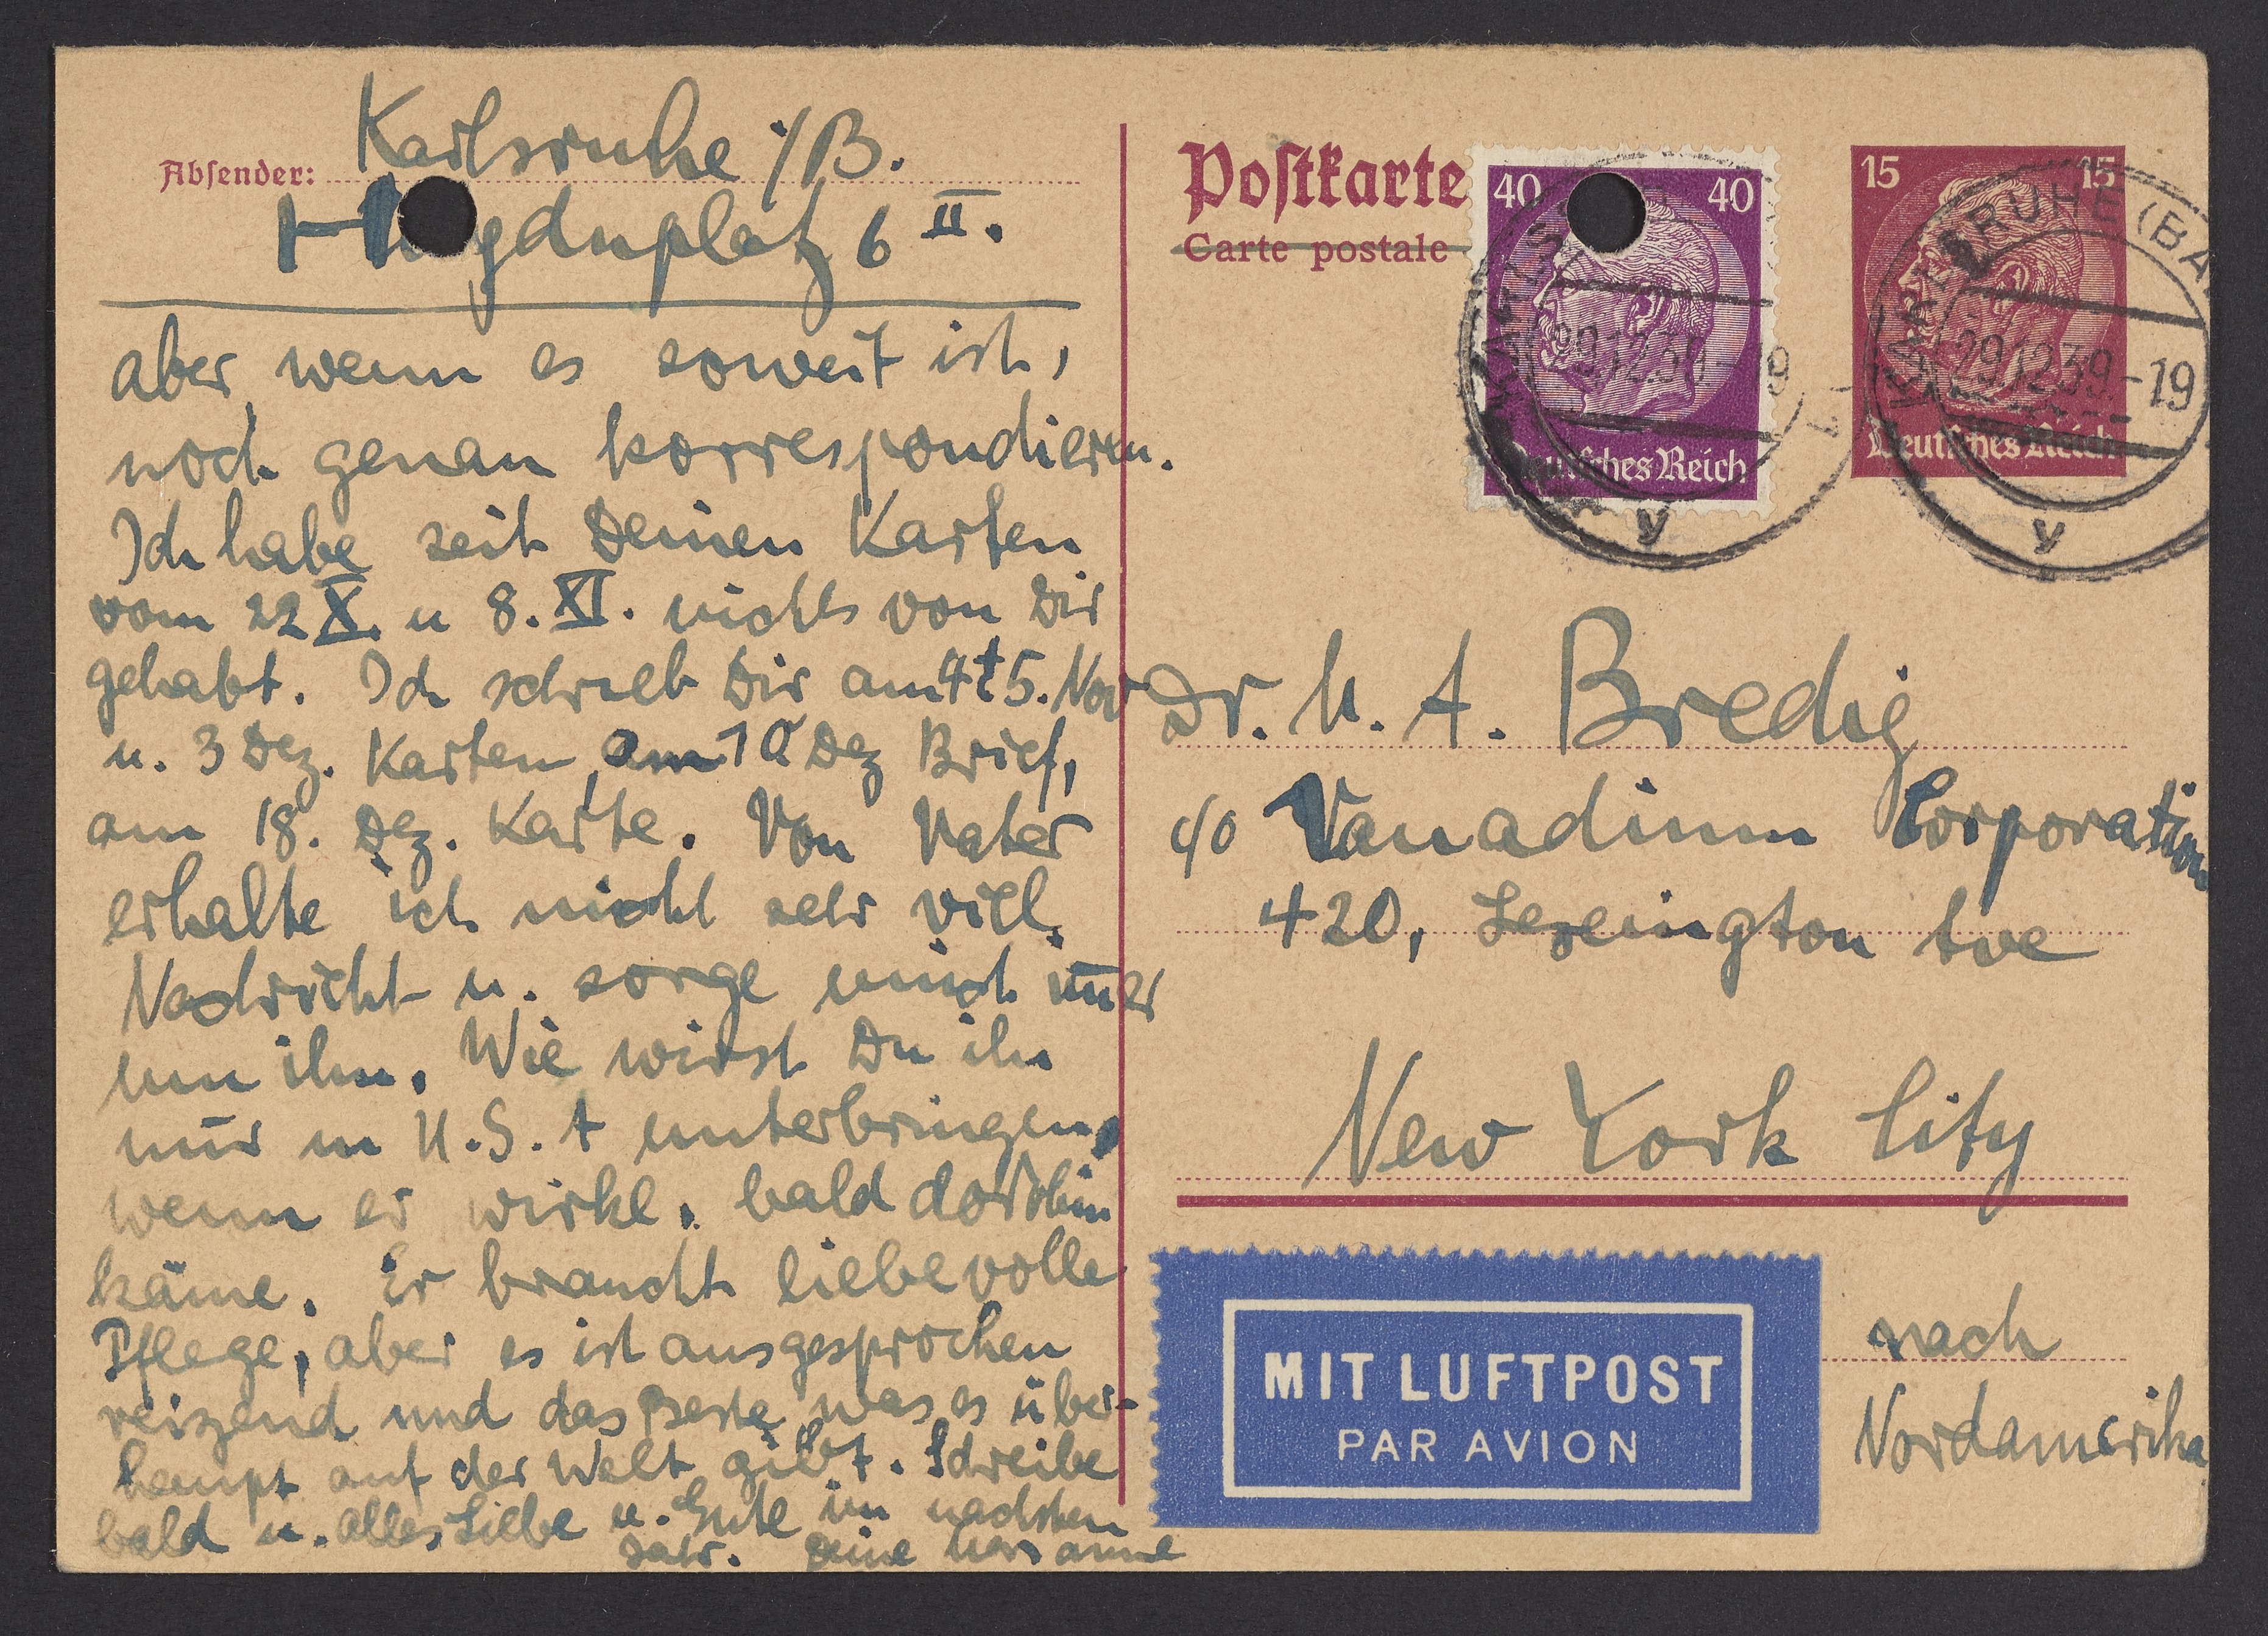 Absender: Karlsruhe i/B.
H ydnplatz 6 II.
aber wenn es soweit ist,
noch genau korrespondieren.
Ich habe seit Deinen Karten
vom 22 X. u 8. XI. nichts von Dir
gehabt. Ich schrieb Dir am 4 t 5. Nov
u. 3 Dez. Karten, am 10 Dez Brief,
am 18. Dez. Karte. Von Vater
erhalte ich nicht sehr viel
Nachricht u. sorge mich um̅er
um ihn. Wie wirst Du ihn
nur in U.S.A unterbringen,
wenn er wirkl. bald dorthin
käme. Er braucht liebevolle
Pflege, aber es ist ausgesprochen
reizend und das Beste was es über-
haupt auf der Welt gibt. Schreibe
bald u. alles Liebe u. Gute im nächsten
Jahr. Deine Marianne
Postkarte
Carte postale
40 40
Deutsches Reich
15 15
Deutsches Reich
KARLSRUHE
29.12.39.-19
y
KARLSRUHE (BA
29.12.39.-19
y
Dr. M. A. Bredig
c/o Vanadium Corporation
420, Lexington Ave
New York City
MIT LUFTPOST
PAR AVION
nach
Nordamerika